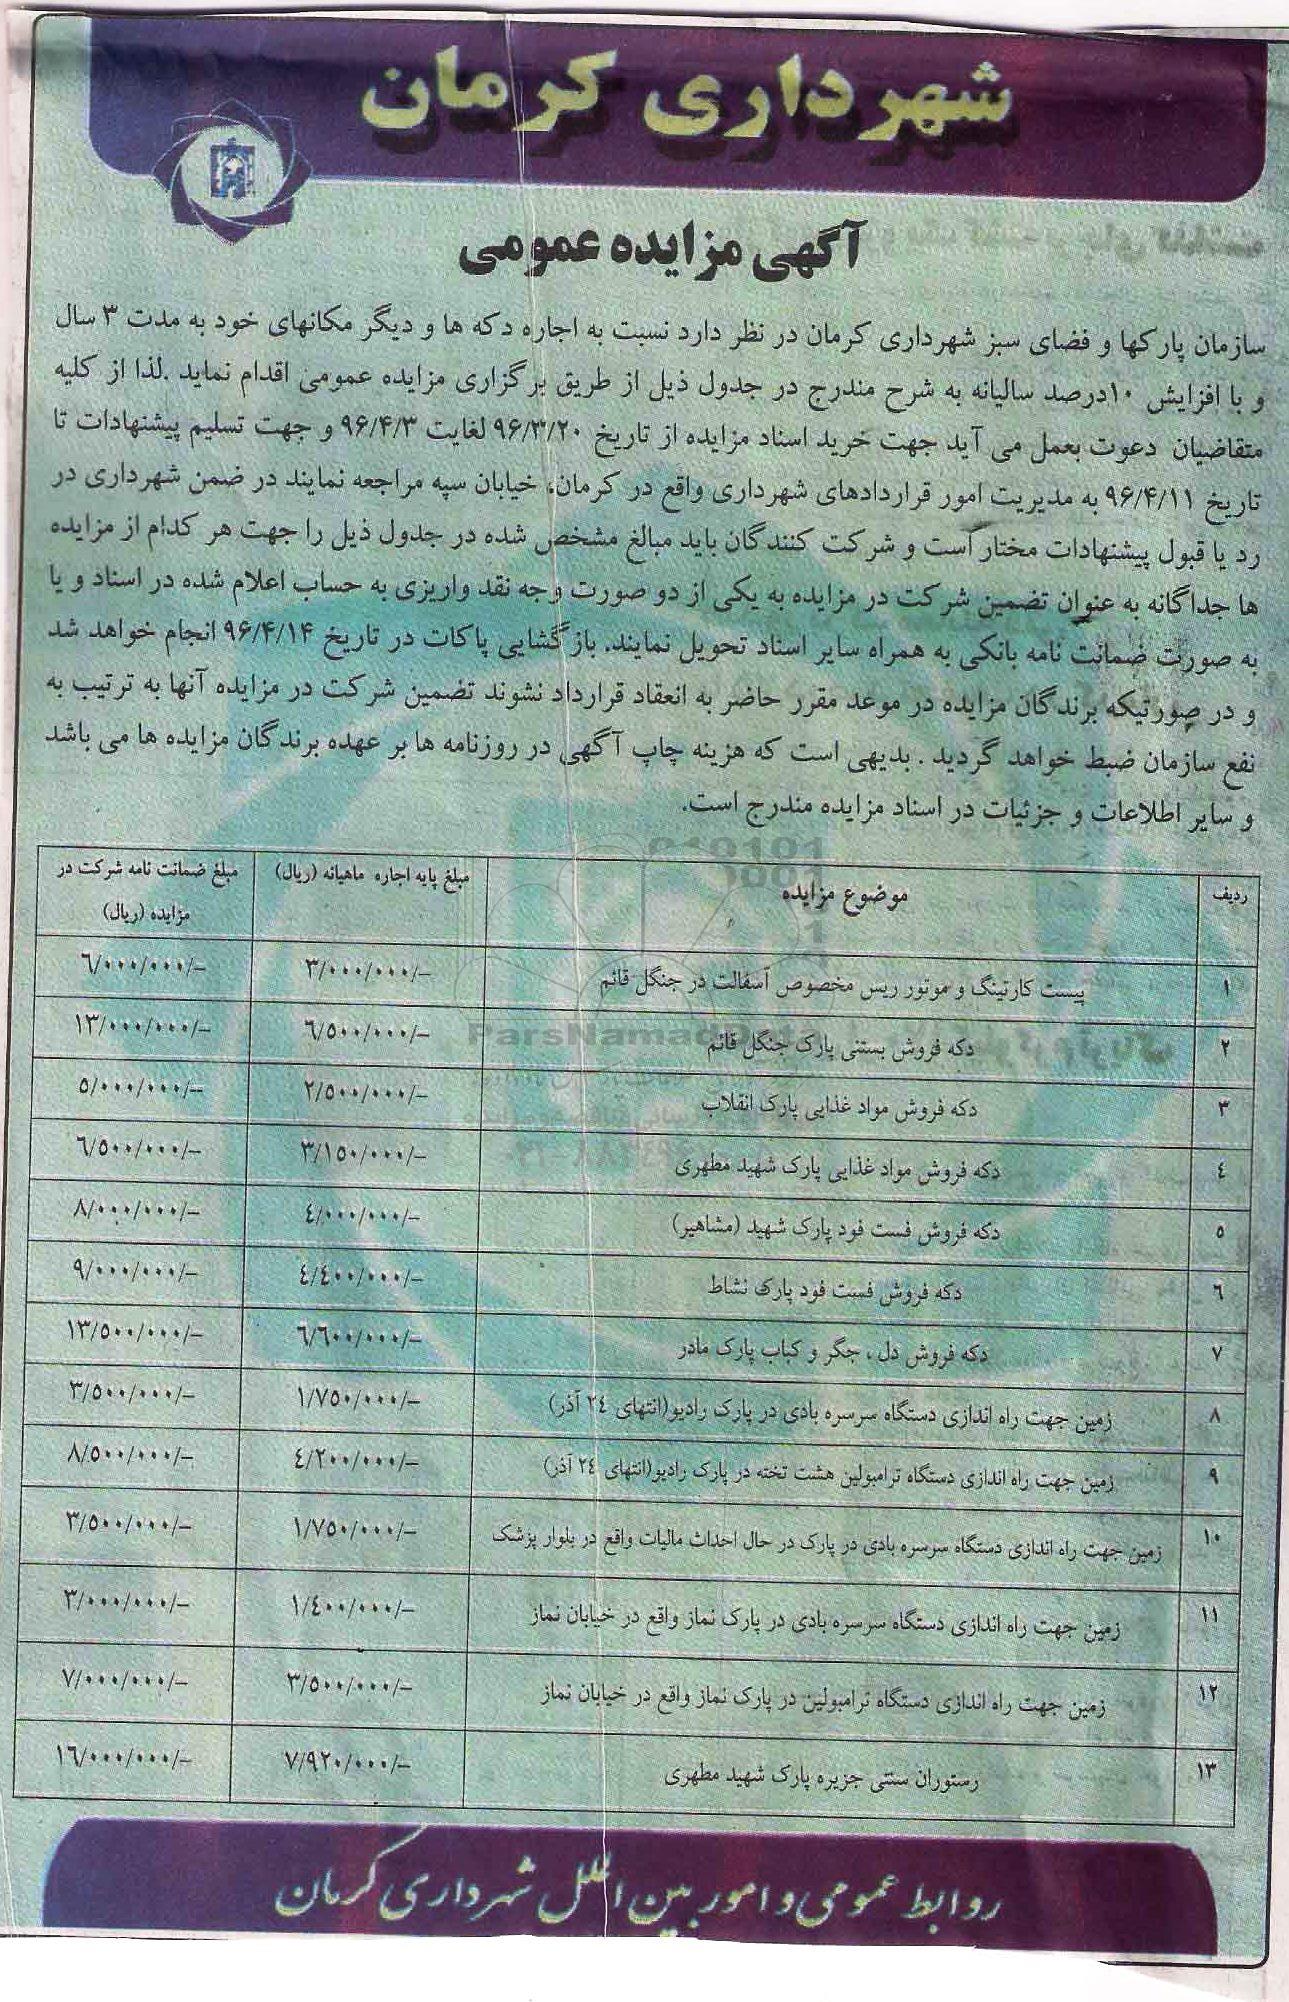 شهرداری کرمان
آگهی مزایده عمومی
سازمان پارکها و فضای سبز شهرداری کرمان در نظر دارد نسبت به اجاره دکه ها و دیگر مکانهای خود به مدت ۳ سال
و با افزایش ۱۰درصد سالیانه به شرح مندرج در جدول ذیل از طریق برگزاری مزایده عمومی اقدام نماید .لذا از کلیه
متقاضیان دعوت بعمل می آید جهت خرید اسناد مزایده از تاریخ ۹۶/۳/۲۰ لغایت ۹۶/۴/۳ و جهت تسلیم پیشنهادات تا
تاریخ ۹۶/۴/۱۱ به مدیریت امور قراردادهای شهرداری واقع در کرمان، خیابان سپه مراجعه نمایند در ضمن شهرداری در
رد یا قبول پیشنهادات مختار است و شرکت کنندگان باید مبالغ مشخص شده در جدول ذیل را جهت هر کدام از مزایده
ها جداگانه به عنوان تضمین شرکت در مزایده به یکی از دو صورت وجه نقد واریزی به حساب اعلام شده در اسناد و یا
به صورت ضمانت نامه بانکی به همراه سایر اسناد تحویل نمایند. بازگشایی پاکات در تاریخ ۹۶/۴/۱۴ انجام خواهد شد
و در صورتیکه برندگان مزایده در موعد مقرر حاضر به انعقاد قرارداد نشوند تضمین شرکت در مزایده آنها به ترتیب به
نفع سازمان ضبط خواهد گردید . بدیهی است که هزینه چاپ آگهی در روزنامه ها بر عهده برندگان مزایده ها می باشد
و سایر اطلاعات و جزئیات در اسناد مزایده مندرج است.
ردیف موضوع مزایده مبلغ پایه اجاره ماهیانه (ریال) مبلغ ضمانت نامه شرکت در
مزایده (ریال)
۱ پیست کارتینگ و موتور ریس مخصوص آسفالت در جنگل قائم ۳/۰۰۰/۰۰۰/- ۶/۰۰۰/۰۰۰/-
۲ دکه فروش بستنی پارک جنگل قائم ۶/۵۰۰/۰۰۰/- ۱۳/۰۰۰/۰۰۰/-
۳ دکه فروش مواد غذایی پارک انقلاب ۲/۵۰۰/۰۰۰/- ۵/۰۰۰/۰۰۰/-
۴ دکه فروش مواد غذایی پارک شهید مطهری ۳/۱۵۰/۰۰۰/- ۶/۵۰۰/۰۰۰/-
۵ دکه فروش فست فود پارک شهید (مشاهیر) ۴/۰۰۰/۰۰۰/- ۸/۰۰۰/۰۰۰/-
۶ دکه فروش فست فود پارک نشاط ۴/۴۰۰/۰۰۰/- ۹/۰۰۰/۰۰۰/-
۷ دکه فروش دل ، جگر و کباب پارک مادر ۶/۶۰۰/۰۰۰/- ۱۳/۵۰۰/۰۰۰/-
۸ زمین جهت راه اندازی دستگاه سرسره بادی در پارک رادیو(انتهای ۲۴ آذر) ۱/۷۵۰/۰۰۰/- ۳/۵۰۰/۰۰۰/-
۹ زمین جهت راه اندازی دستگاه ترامبولین هشت تخته در پارک رادیو(انتهای ۲۴ آذر) ۴/۲۰۰/۰۰۰/- ۸/۵۰۰/۰۰۰/-
۱۰ زمین جهت راه اندازی دستگاه سرسره بادی در پارک در حال احداث مالیات واقع در بلوار پزشک ۱/۷۵۰/۰۰۰/- ۳/۵۰۰/۰۰۰/-
۱۱ زمین جهت راه اندازی دستگاه سرسره بادی در پارک نماز واقع در خیابان نماز ۱/۴۰۰/۰۰۰/- ۳/۰۰۰/۰۰۰/-
۱۲ زمین جهت راه اندازی دستگاه ترامبولین در پارک نماز واقع در خیابان نماز ۳/۵۰۰/۰۰۰/- ۷/۰۰۰/۰۰۰/-
۱۳ رستوران سنتی جزیره پارک شهید مطهری ۷/۹۲۰/۰۰۰/- ۱۶/۰۰۰/۰۰۰/-
ParsNamadData
روابط عمومی و امور بین الملل شهرداری کرمان